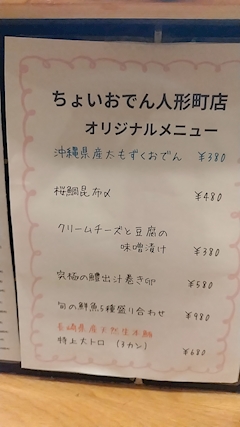 ちょいおでん人形町店
オリジナルメニュー
沖縄県産太もずくおでん ¥380
桜鯛昆布〆 ¥480
クリームチーズと豆腐の
味噌漬け ¥380
究極の鱧出汁巻き卵 ¥580
旬の鮮魚5種盛り合わせ ¥980
長崎県産天然生本鮪
特上大トロ (3カン) ¥680